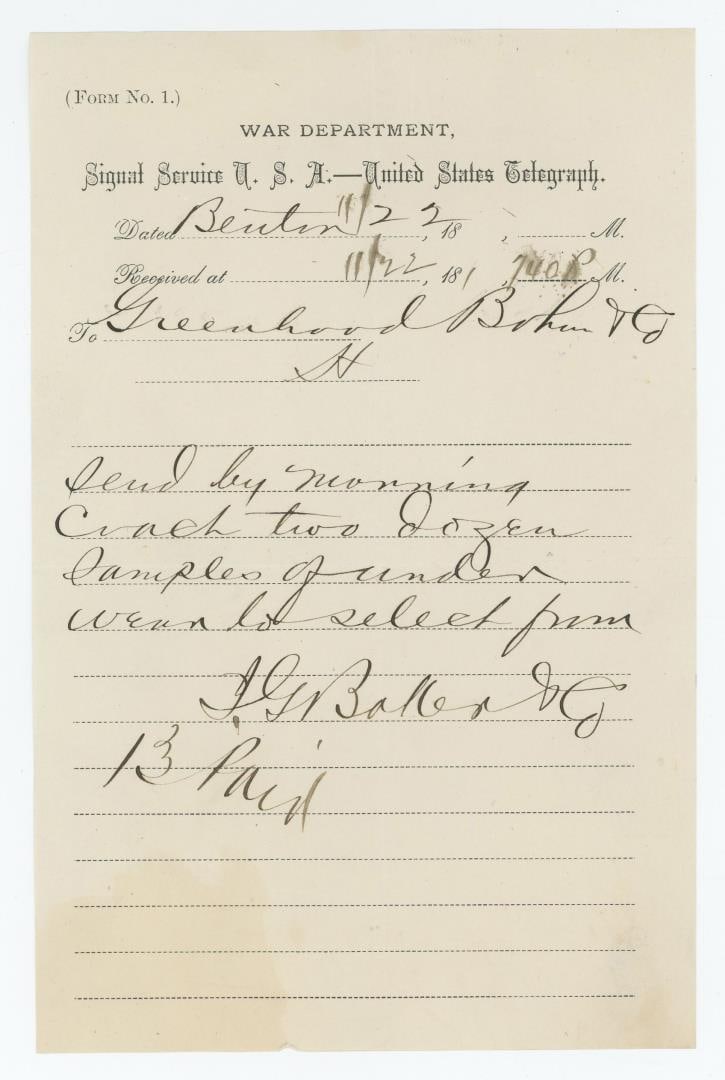 (FORM NO. 1.)
WAR DEPARTMENT,
Signal Service U. S. A.—United States Telegraph.
Dated Benton 11/22, 18 , M.
Received at 11/22, 181, 740 P M.
To Greenhood Bohm & Co
H
Send by morning
Coach two dozen
Samples of under
wear to select from
I. G. Baker & Co
13 Paid